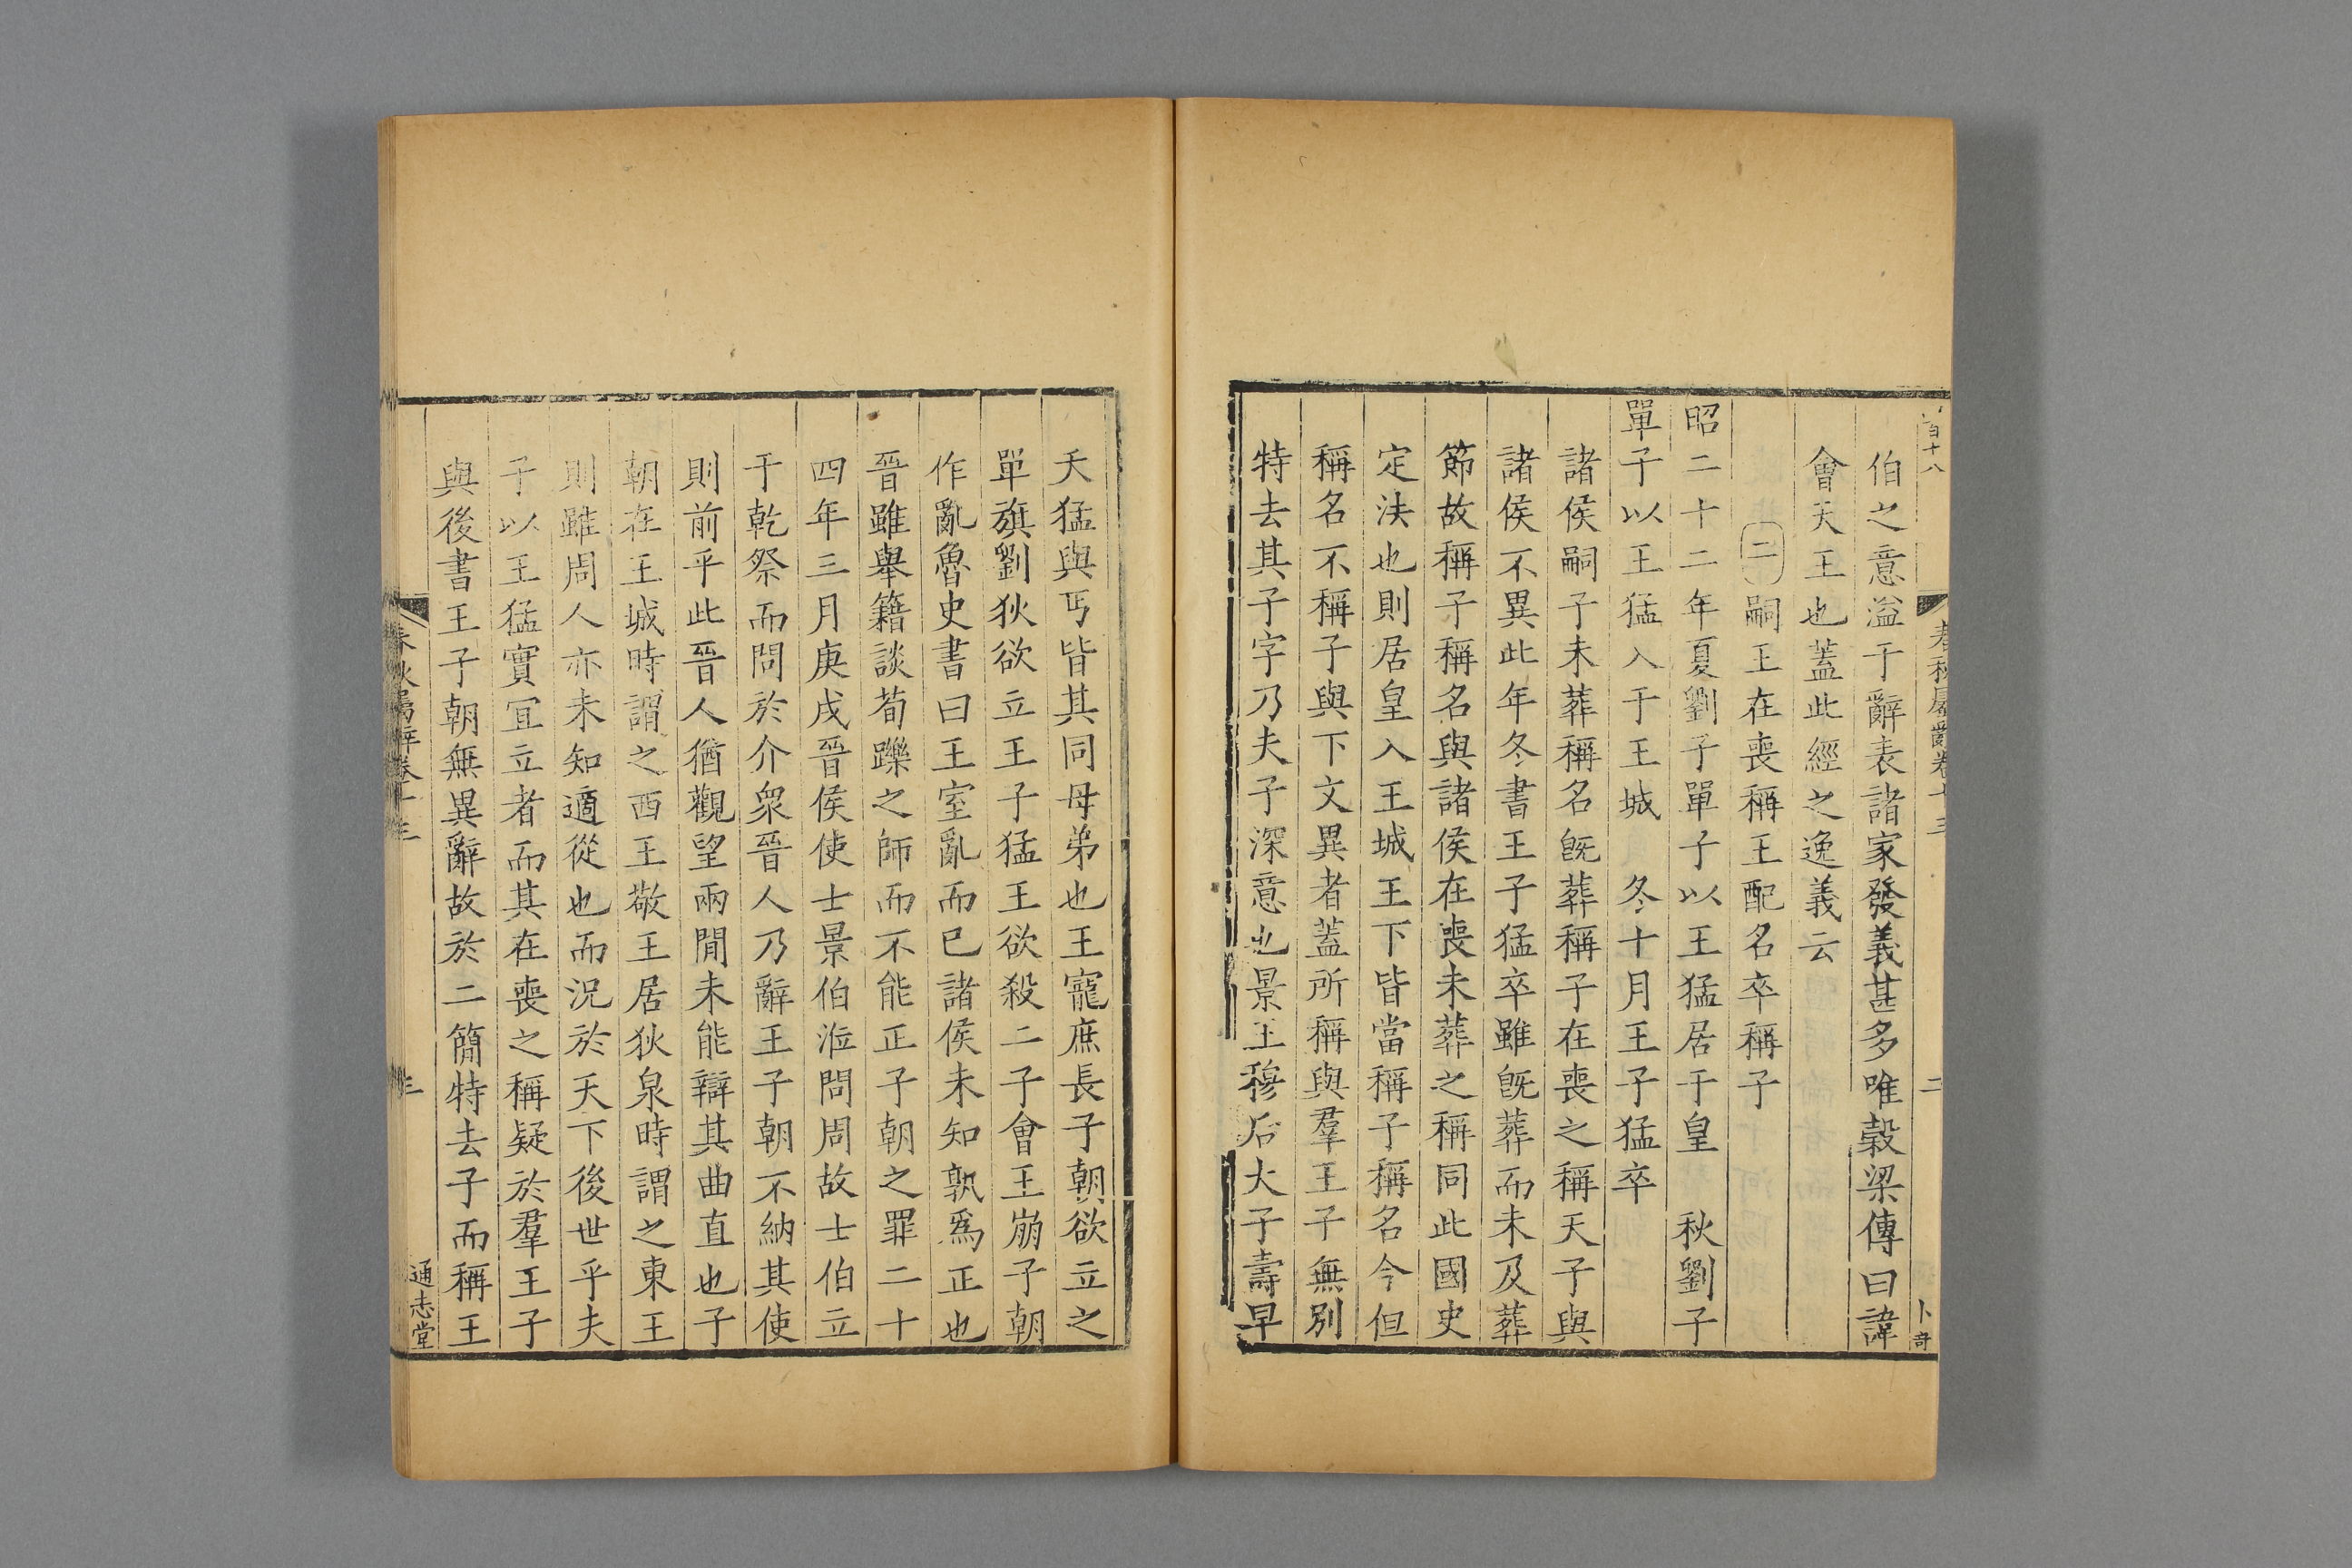 百十八
春秋屬辭卷十三
二
卜奇
伯之意溢于辭表諸家發義甚多唯穀梁傳曰諱
會天王也蓋此經之逸義云
二嗣王在喪稱王配名卒稱子
昭二十二年夏劉子單子以王猛居于皇　秋劉子
單子以王猛入于王城　冬十月王子猛卒
諸侯嗣子未葬稱名旣葬稱子在喪之稱天子與
諸侯不異此年冬書王子猛卒雖旣葬而未及葬
節故稱子稱名與諸侯在喪未葬之稱同此國史
定法也則居皇入王城王下皆當稱子稱名今但
稱名不稱子與下文異者蓋所稱與羣王子無別
特去其子字乃夫子深意也景王穆后大子壽早
夭猛與丐皆其同母弟也王寵庶長子朝欲立之
單旗劉狄欲立王子猛王欲殺二子會王崩子朝
作亂魯史書曰王室亂而已諸侯未知孰爲正也
晉雖舉籍談荀躒之師而不能正子朝之罪二十
四年三月庚戌晉侯使士景伯涖問周故士伯立
于乾祭而問於介衆晉人乃辭王子朝不納其使
則前乎此晉人猶觀望兩閒未能辯其曲直也子
朝在王城時謂之西王敬王居狄泉時謂之東王
則雖周人亦未知適從也而況於天下後世乎夫
子以王猛實宜立者而其在喪之稱疑於羣王子
與後書王子朝無異辭故於二簡特去子而稱王
春秋屬辭卷十三
三
通志堂